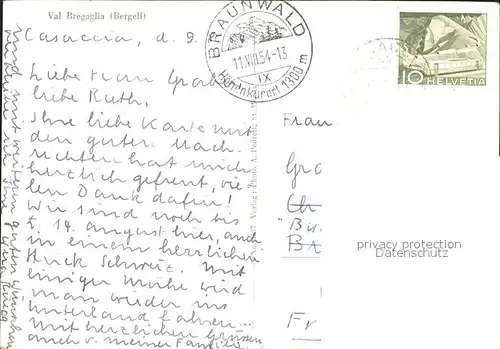 Val Bregaglia (Bergell)
Casaccia, d. 9.
Liebe Frau Grab
liebe Ruth,
Ihre liebe Karte mit
den guten Nach-
richten hat mich
herzlich gefreut, vie-
len Dank dafür!
Wir sind noch bis
z. 14. August hier, auch
in einem herrlichen
Stück Schweiz. Mit
einiger Mühe wird
man wieder ins
Unterland fahren...
Mit herzlichen Grüssen,
auch v. meiner Familie
und mit weiteren guten Wünschen
BRAUNWALD
11.VIII.54-13
IX
Höhenkurort 1300 m
10 HELVETIA
Verlag: Photo A. Pedrett, St.
Frau
Gra
Ch
Bu.
Br
Fr
privacy protection
Datenschutz